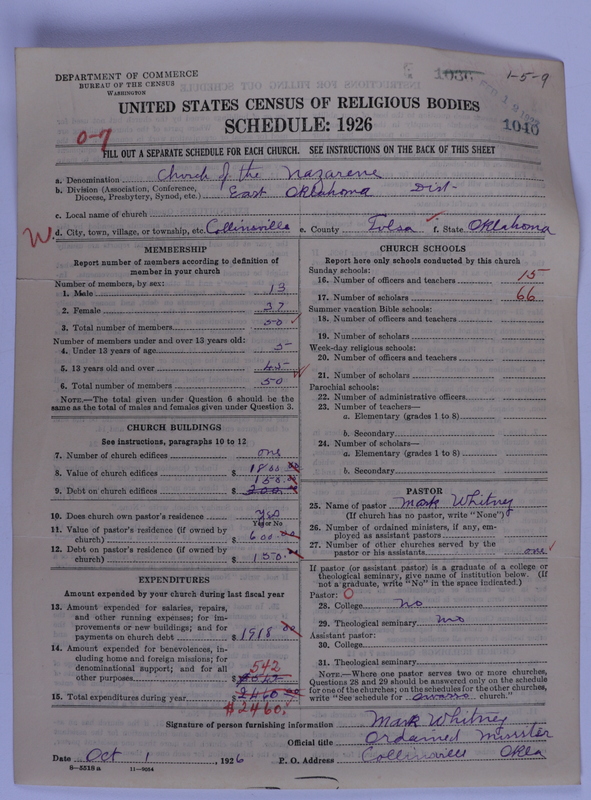 DEPARTMENT OF COMMERCE
BUREAU OF THE CENSUS
WASHINGTON
1036
1-5-9
1040
UNITED STATES CENSUS OF RELIGIOUS BODIES
SCHEDULE: 1926
0-7
FILL OUT A SEPARATE SCHEDULE FOR EACH CHURCH. SEE INSTRUCTIONS ON THE BACK OF THIS SHEET
a. Denomination Church of the Nazarene
b. Division (Association, Conference, Diocese, Presbytery, Synod, etc.) East Oklahoma Dist-
c. Local name of church
W. d. City, town, village, or township, etc. Collinsville e. County Tulsa f. State Oklahoma
MEMBERSHIP
Report number of members according to definition of
member in your church
Number of members, by sex:
1. Male 13
2. Female 37
3. Total number of members 50
Number of members under and over 13 years old:
4. Under 13 years of age 5
5. 13 years old and over 45
6. Total number of members 50
NOTE.—The total given under Question 6 should be the
same as the total of males and females given under Question 3.
CHURCH BUILDINGS
See instructions, paragraphs 10 to 12
7. Number of church edifices one
8. Value of church edifices $ 1800.00
150.00
9. Debt on church edifices $ 200.00
10. Does church own pastor's residence yes
Yes or No
11. Value of pastor's residence (if owned by
church) $ 600.00
12. Debt on pastor's residence (if owned by
church) $ 150.00
EXPENDITURES
Amount expended by your church during last fiscal year
13. Amount expended for salaries, repairs,
and other running expenses; for im-
provements or new buildings; and for
payments on church debt $ 1918.00
14. Amount expended for benevolences, in-
cluding home and foreign missions; for
denominational support; and for all
542
other purposes $ 542
15. Total expenditures during year $ 2460.00
$2460.
CHURCH SCHOOLS
Report here only schools conducted by this church
Sunday schools:
16. Number of officers and teachers 15
17. Number of scholars 66
Summer vacation Bible schools:
18. Number of officers and teachers
19. Number of scholars
Week-day religious schools:
20. Number of officers and teachers
21. Number of scholars
Parochial schools:
22. Number of administrative officers
23. Number of teachers—
a. Elementary (grades 1 to 8)
b. Secondary
24. Number of scholars—
a. Elementary (grades 1 to 8)
b. Secondary
PASTOR
25. Name of pastor Mark Whitney
(If church has no pastor, write "None")
26. Number of ordained ministers, if any, em-
ployed as assistant pastors
27. Number of other churches served by the
pastor or his assistants one
If pastor (or assistant pastor) is a graduate of a college or
theological seminary, give name of institution below. (If
not a graduate, write "No" in the space indicated.)
Pastor: O
28. College no
29. Theological seminary no
Assistant pastor:
30. College
31. Theological seminary
NOTE.—Where one pastor serves two or more churches,
Questions 28 and 29 should be answered only on the schedule
for one of the churches; on the schedules for the other churches,
write "See schedule for Owasso church."
Signature of person furnishing information Mark Whitney
Official title Ordained Minister
Date Oct 1, 1926 P. O. Address Collinsville Okla
8—5518 a 11—9034